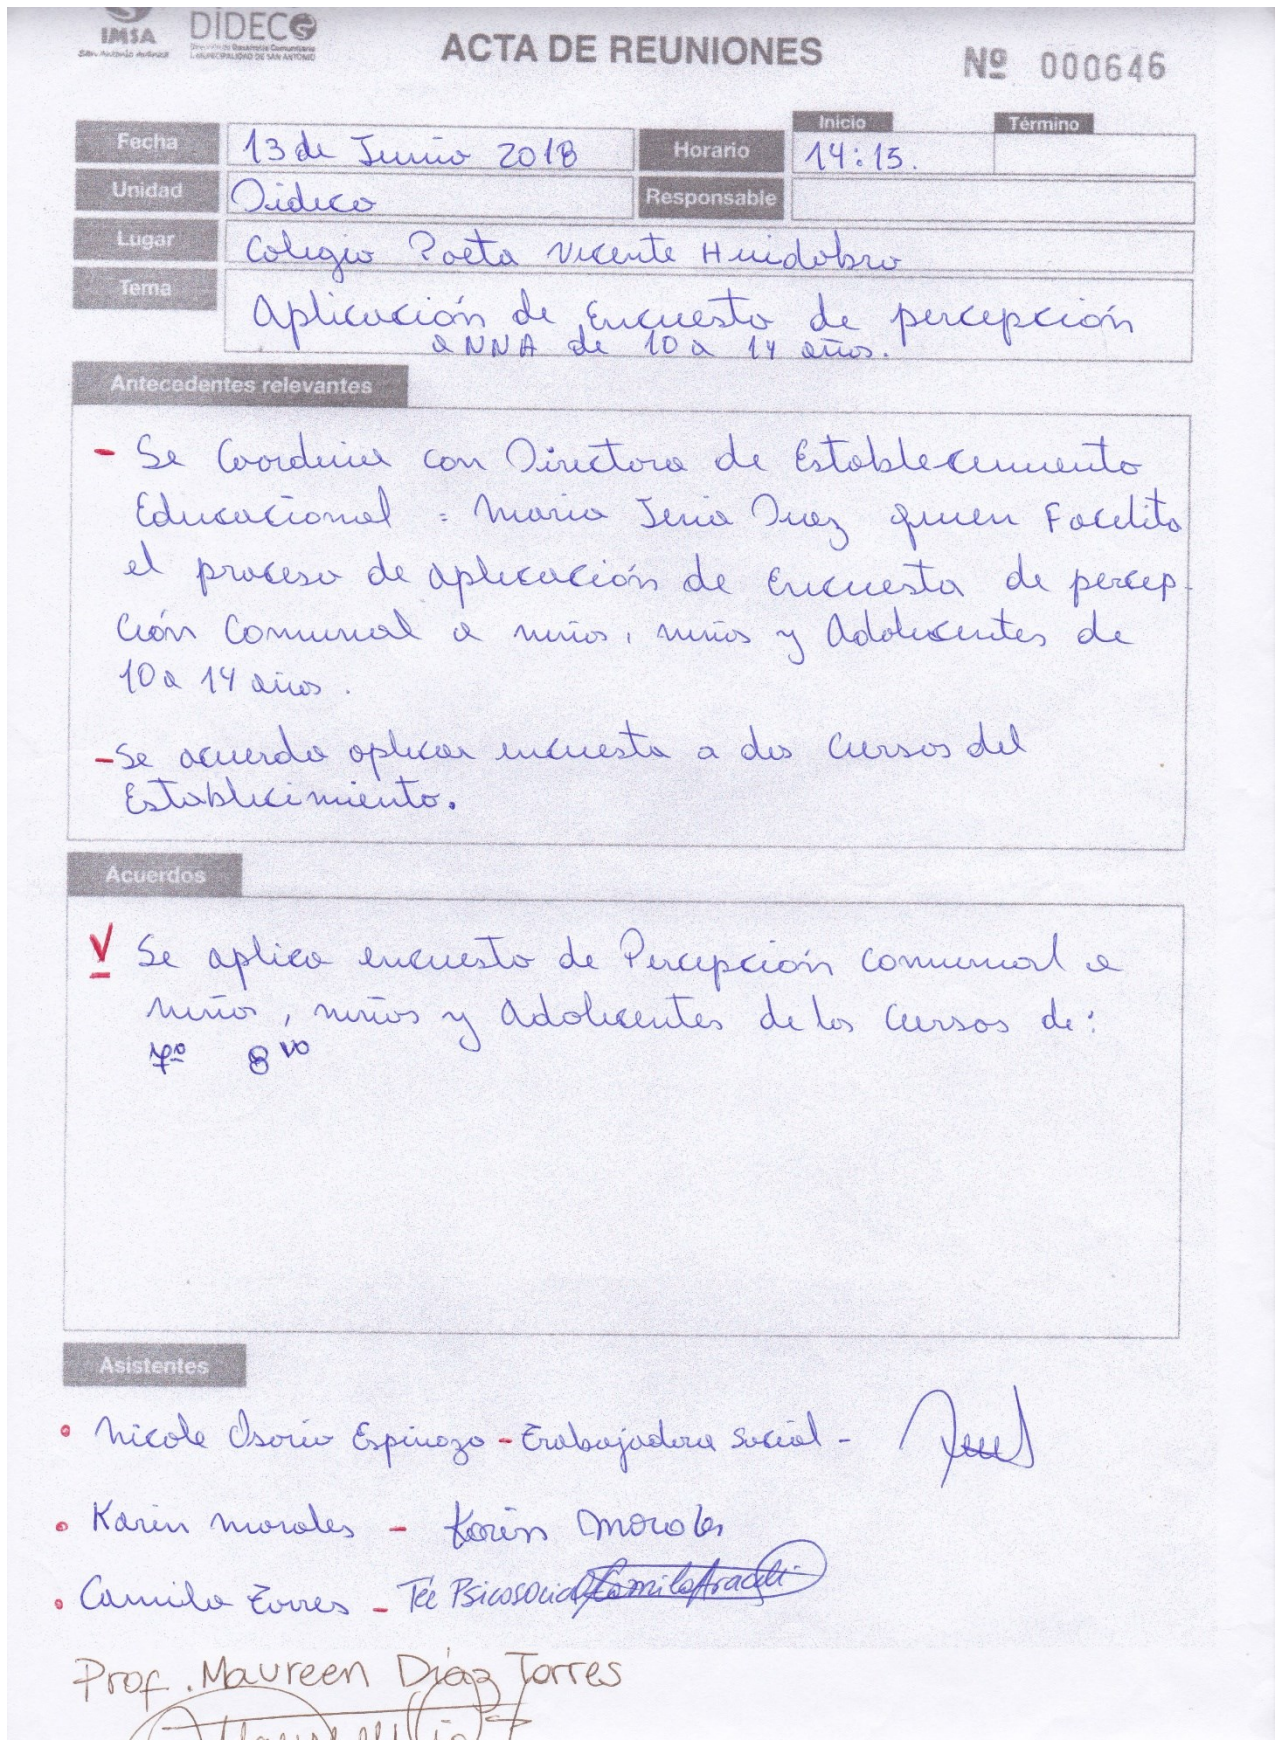 IMSA
San Antonio Avanza
DIDECO
Dirección de Desarrollo Comunitario
I. MUNICIPALIDAD DE SAN ANTONIO
ACTA DE REUNIONES
Nº 000646
Inicio Término
Fecha 13 de Junio 2018 Horario 14:15.
Unidad Dideco Responsable
Lugar Colegio Poeta Vicente Huidobro
Tema Aplicación de Encuesta de percepción
a NNA de 10 a 14 años.
Antecedentes relevantes
- Se Coordina con Directora de Establecimiento
Educacional : Maria Diaz quien Facilita
el proceso de aplicación de Encuesta de percep-
ción Comunal a niños, niñas y Adolescentes de
10 a 14 años.
- Se acuerda aplicar encuesta a dos Cursos del
Establecimiento.
Acuerdos
Se aplica encuesta de Percepción Comunal a
niños, niñas y Adolescentes de los Cursos de:
7º 8vo
Asistentes
• Nicole Osorio Espinoza - Trabajadora Social -
• Karin Morales - Karin Morales
• Camila Torres - Téc Psicosocial
Prof. Maureen Díaz Torres